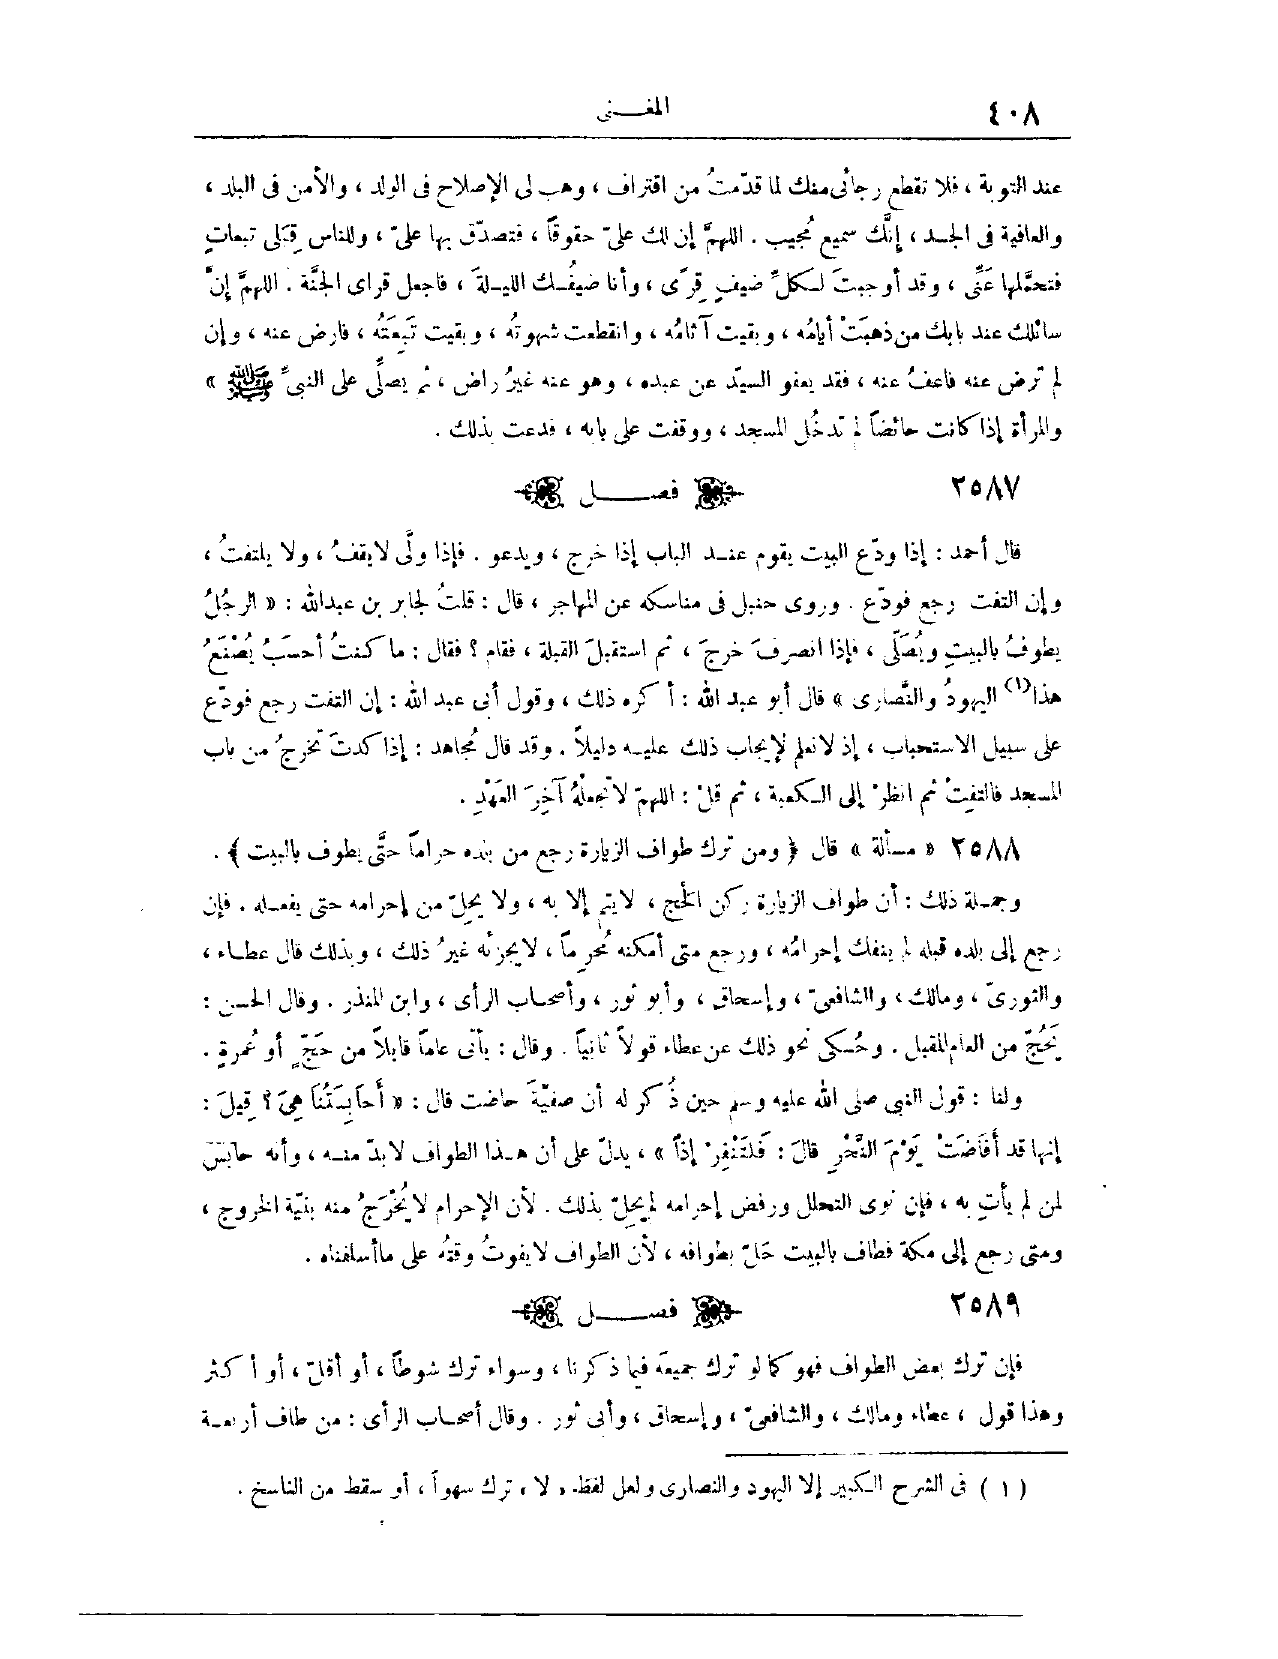 ٤٠٨
المغـــنى
عند التوبة ، فلا تقطع رجائى منك لما قدّمتُ من اقتراف ، وهب لى الإصلاح فى الولد ، والأمن فى البلد ،
والعافية فى الجسد ، إنَّك سميع مُجيب . اللهمَّ إن لك علىّ حقوقاً ، فتصدّق بها علىّ ، وللناس قِبَلى تبعاتٍ
فتحمَّلها عَنِّى ، وقد أوجبتَ لكلِّ ضيفٍ قِرًى ، وأنا ضيفُك الليلةَ ، فاجعل قراى الجنَّة . اللهمَّ إنَّ
سائلك عند بابك من ذهبَتْ أيامُه ، وبقيت آثامُه ، وانقطعت شهوتُه ، وبقيت تَبِعَتُه ، فارض عنه ، وإن
لم ترض عنه فاعفُ عنه ، فقد يعفو السيّد عن عبده ، وهو عنه غيرُ راض ، ثم يصلِّى على النبىّ ﷺ »
والمرأة إذا كانت حائضاً لم تدخُل المسجد ، ووقفت على بابه ، فدعت بذلك .
٢٥٨٧
فصــــل
قال أحمد : إذا ودّع البيت يقوم عند الباب إذا خرج ، ويدعو . فإذا ولَّى لا يقفُ ، ولا يلتفتُ ،
وإن التفت رجع فودّع . وروى حنبل فى مناسكه عن المهاجر ، قال : قلتُ لجابر بن عبدالله : « الرجُلُ
يطوفُ بالبيتِ ويُصَلّى ، فإذا انصرفَ خرجَ ، ثم استقبلَ القبلة ، فقام ؟ فقال : ما كنتُ أحسَبُ يُصْنَعُ
هذا(١) اليهودُ والنَّصارى » قال أبو عبد الله : أكره ذلك ، وقول أبى عبد الله : إن التفت رجع فودّع
على سبيل الاستحباب ، إذ لا نعلم لإيجاب ذلك عليه دليلاً . وقد قال مُجاهد : إذا كدتَ تخرجُ من باب
المسجد فالتفِتْ ثم انظرْ إلى الكعبة ، ثم قلْ : اللهمّ لا تجعلْهُ آخِرَ العَهْدِ .
٢٥٨٨ « مسألة » قال ﴿ ومن ترك طواف الزيارة رجع من بلده حراماً حتَّى يطوف بالبيت ﴾ .
وجملة ذلك : أن طواف الزيارة ركن الحج ، لا يتم إلا به ، ولا يحِلّ من إحرامه حتى يفعله . فإن
رجع إلى بلده قبله لم ينفك إحرامُه ، ورجع متى أمكنه مُحرِماً ، لا يجزئه غيرُ ذلك ، وبذلك قال عطاء ،
والثورىّ ، ومالك ، والشافعىّ ، وإسحاق ، وأبو ثور ، وأصحاب الرأى ، وابن المنذر . وقال الحسن :
يَحُجّ من العام المقبل . وحُكى نحو ذلك عن عطاء قولاً ثانياً . وقال : يأتى عاماً قابلاً من حَجّ أو عُمرةٍ .
ولنا : قول النبى صلى الله عليه وسلم حين ذُكر له أن صفيّةَ حاضت قال : « أَحَابِسَتُنَا هِىَ ؟ قِيلَ :
إنها قد أَفَاضَتْ يَوْمَ النَّحْرِ قالَ : فَلتَنْفِرْ إذاً » ، يدلّ على أن هذا الطواف لا بدّ منه ، وأنه حابسٌ
لمن لم يأتِ به ، فإن نوى التحلل ورفض إحرامه لم يحِلّ بذلك . لأن الإحرام لا يُخْرَجُ منه بنيّة الخروج ،
ومتى رجع إلى مكة فطاف بالبيت حَلّ بطوافه ، لأن الطواف لا يفوتُ وقتُه على ما أسلفناه .
٢٥٨٩
فصــــل
فإن ترك بعض الطواف فهو كما لو ترك جميعَه فيما ذكرنا ، وسواء ترك شوطاً ، أو أقلّ ، أو أكثر
وهذا قول ، عطاء ومالك ، والشافعىّ ، وإسحاق ، وأبى ثور . وقال أصحاب الرأى : من طاف أربعة
( ١ ) فى الشرح الكبير إلا اليهود والنصارى ولعل لفظ « لا » ترك سهواً ، أو سقط من الناسخ .